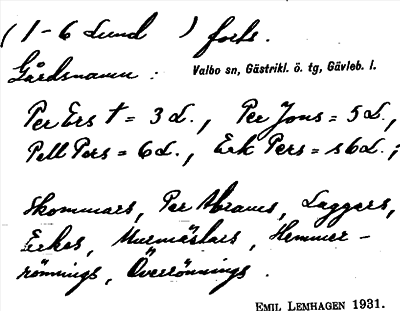 ( 1-6 Lund ) forts.
Gårdsnamn :
Valbo sn, Gästrikl. ö. tg, Gävleb. l.
Per Ers † = 3 L., Per Jons = 5 L.,
Pell Pers = 6 L., Erk Pers = s6 L.;
Skommars, Per Abrams, Laggars,
Erkes, Murmästars, Hemmer-
rönnings, Överrönnings.
EMIL LEMHAGEN 1931.